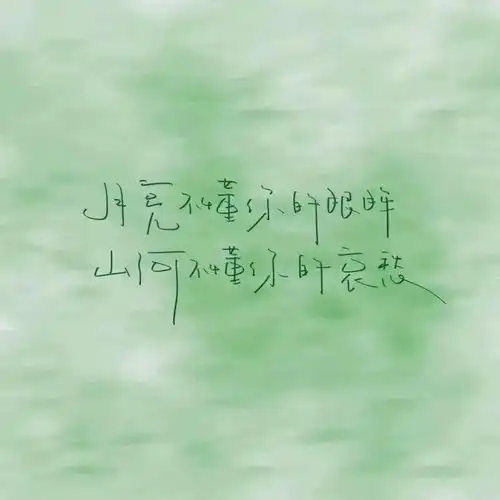 月亮不懂你的眼眸
山河不懂你的哀愁